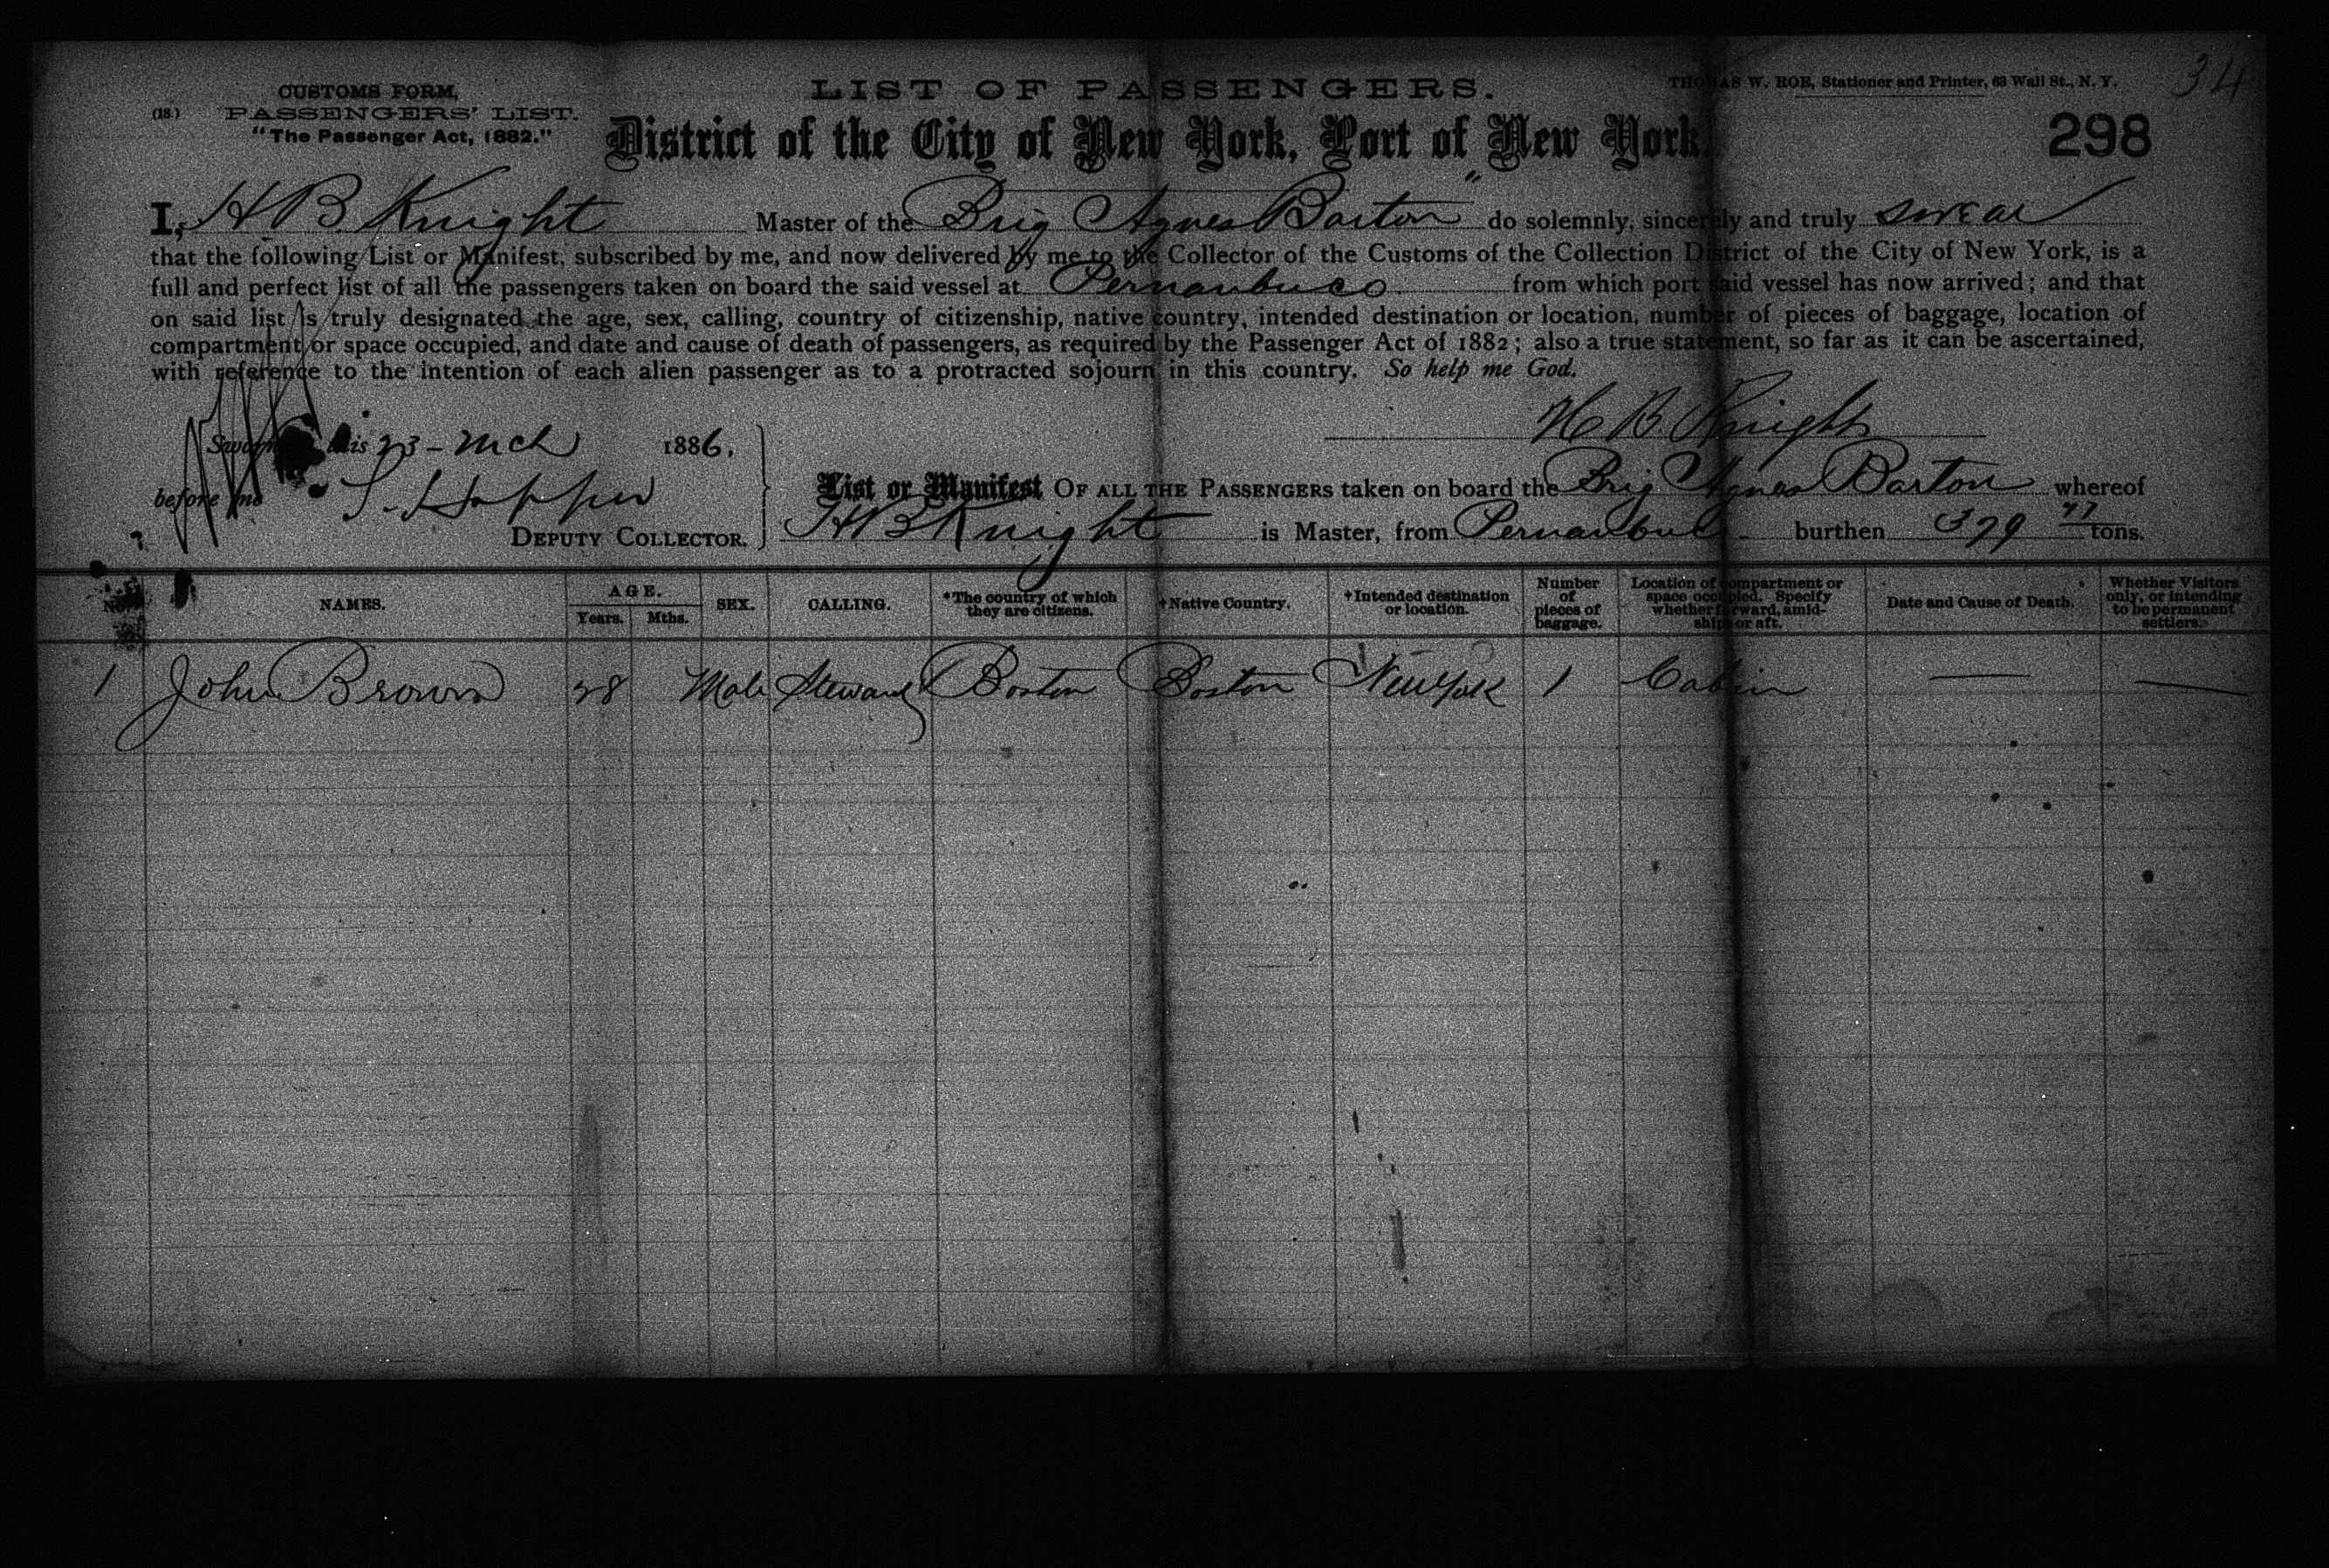 34
CUSTOMS FORM,
(18) PASSENGERS' LIST.
"The Passenger Act, 1882."
LIST OF PASSENGERS.
THOMAS W. ROE, Stationer and Printer, 63 Wall St., N. Y.
District of the City of New York, Port of New York.
298
I, H B Knight Master of the Brig Agnes Barton" do solemnly, sincerely and truly swear
that the following List or Manifest, subscribed by me, and now delivered by me to the Collector of the Customs of the Collection District of the City of New York, is a
full and perfect list of all the passengers taken on board the said vessel at Pernanbuco from which port said vessel has now arrived; and that
on said list is truly designated the age, sex, calling, country of citizenship, native country, intended destination or location, number of pieces of baggage, location of
compartment or space occupied, and date and cause of death of passengers, as required by the Passenger Act of 1882; also a true statement, so far as it can be ascertained,
with reference to the intention of each alien passenger as to a protracted sojourn in this country. So help me God.
H B Knight
Sworn this 23 - Mch 1886,
before me
DEPUTY COLLECTOR.
List or Manifest OF ALL THE PASSENGERS taken on board the Brig Agnes Barton whereof
H B Knight is Master, from Pernanbuco burthen 379 tons.
NAMES. AGE. Years. Mths. SEX. CALLING. *The country of which they are citizens. †Native Country. †Intended destination or location. Number of pieces of baggage. Location of compartment or space occupied. Specify whether forward, amidships or aft. Date and Cause of Death. Whether Visitors only, or intending to be permanent settlers.
1 John Brown 28 Male Steward Boston Boston New York 1 Cabin — —